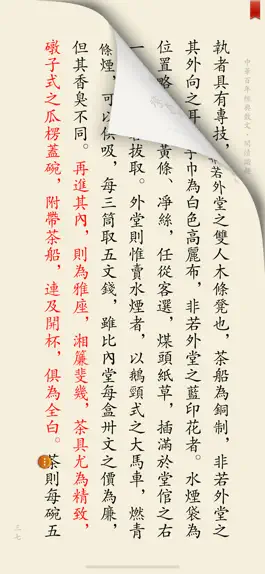 中華百年經典散文·閒情
執者具有專技，非若外堂之雙人木條凳也，茶船為銅制，非若外堂之
其外向之耳 巾為白色高麗布，非若外堂之藍印花者。水煙袋為
位置略 黃條、淨絲，任從客選，煤頭紙草，插滿於堂倌之右
一 拔取。外堂則惟賣水煙者，以鵝頸式之大馬車，燃青
條煙，可以 吸，每三筒取五文錢，雖比內堂每盒卅文之價為廉，
但其香臭不同。再進其內，則為雅座，湘簾斐幾，茶具尤為精致，
墩子式之瓜楞蓋碗，附帶茶船，連及開杯，俱為全白。茶則每碗五
三七